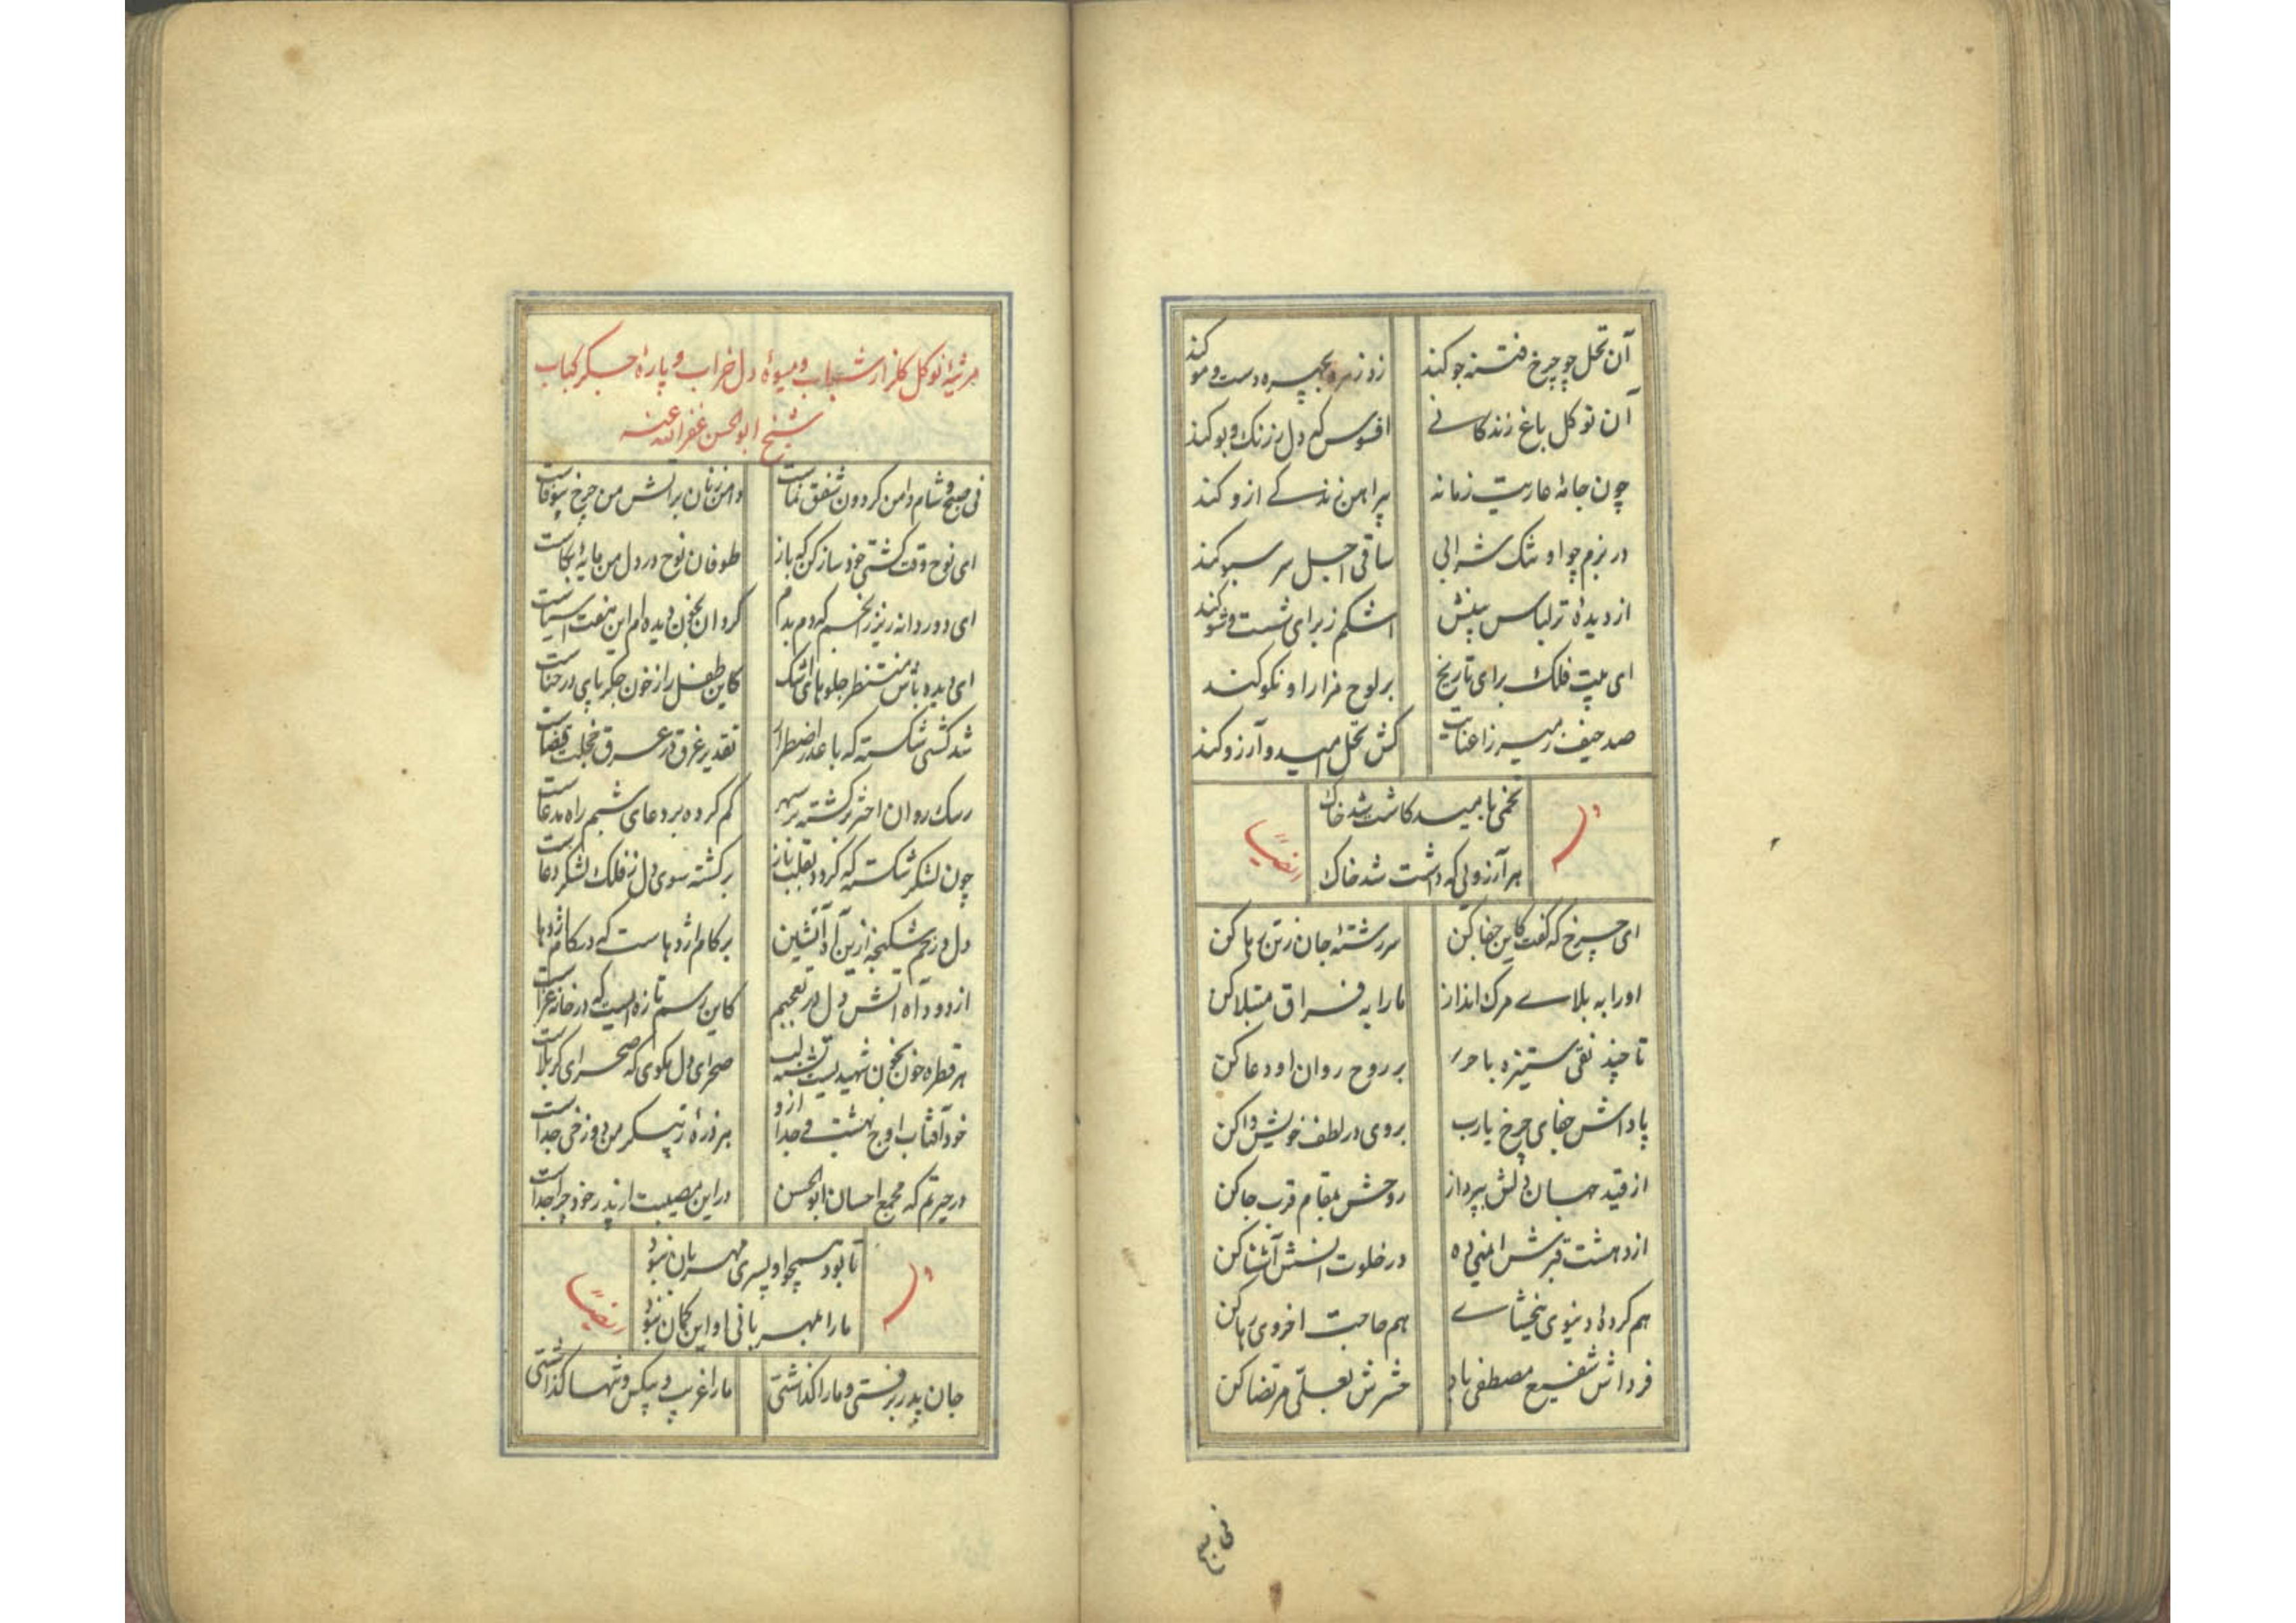 آن نخل چو چرخ فتنه جو کند
زد زهره بچهره دست و مو کند
آن نو کل باغ زندکانی
افسوس که دل ز رنک و بو کند
چون جامهٔ عاریت زمانه
پیراهن زندکی ازو کند
در بزم چو او تنک شرابی
ساقی اجل سر سبو کند
از دیدهٔ تر لباس بینش
اشکم ز برای شست و شو کند
ای فلک برای تاریخ
بر لوح مزار او نکو کند
صد حیف ز میرزا عنایت
کش نخل امید و آرزو کند
تخمی بامید کاشت شد خاک
هر آرزوئی که داشت شد خاک
ای چرخ که کفت کاین جفا کن
سررشتهٔ جان ز تن رها کن
او را به بلای مرک انداز
ما را به فراق مبتلا کن
تا چند نقی ستیزه با
بر روح روان او دعا کن
پاداش جفای چرخ یارب
بروی در لطف خویش وا کن
از قید جهان دلش بپرداز
روحش بمقام قرب جا کن
از دهشت قبرش ایمنی ده
در خلوت انسش آشنا کن
هم کردهٔ دنیوی ببخشای
هم حاجت اخروی روا کن
فرداش شفیع مصطفی باد
حشرش بعلی مرتضا کن
نی صبح
مرثیهٔ نوکل کلزار شباب و میوهٔ دل خراب و پارهٔ جکر کباب
شیخ ابوالحسن غفرالله عنه
نی صبح و شام دامن کردون شفق نماست
دامن زنان بر آتش من چرخ بیوفاست
ای نوح وقت کشتی خود ساز کن که باز
طوفان نوح در دل من مایهٔ بکاست
ای دور دانه ریز ز انجم که دم بدم
کردان بخون دیده ام این هفت آسیاست
ای دیده باش منتظر جلوهای اشک
کاین طفل را ز خون جکر پای در حناست
شد کشتی شکسته که با عذر اضطرار
تقدیر غرق در عرق خجلت قضاست
ریک روان اختر برکشته بر سپهر
کم کرده بر دعای شبم راه مدعاست
چون لشکر شکسته که کردد بقلب باز
برکشته سوی دل ز فلک لشکر دعاست
دل در برم شکنجه ازین آه آتشین
بر کام اژدهاست که در کام اژدها
از دود آه آتش دل در تعجبم
کاین رسم تازه ایست که در خانهٔ عزاست
هر قطره خون بخون شهیدیست تشنه لب
صحرای دل مکوی که صحرای کربلاست
خود آفتاب اوج بهشت و جدا ازو
هر ذره ز پیکر من دوزخی جداست
در حیرتم که مجمع احسان ابوالحسن
در این مصیبت از پدر خود چرا جداست
تا بود همچو او پسری مهربان نبود
ما را بمهربانی او این کمان نبود
جان پدر برفتی و ما را کذاشتی
ما را غریب و بیکس و تنها کذاشتی